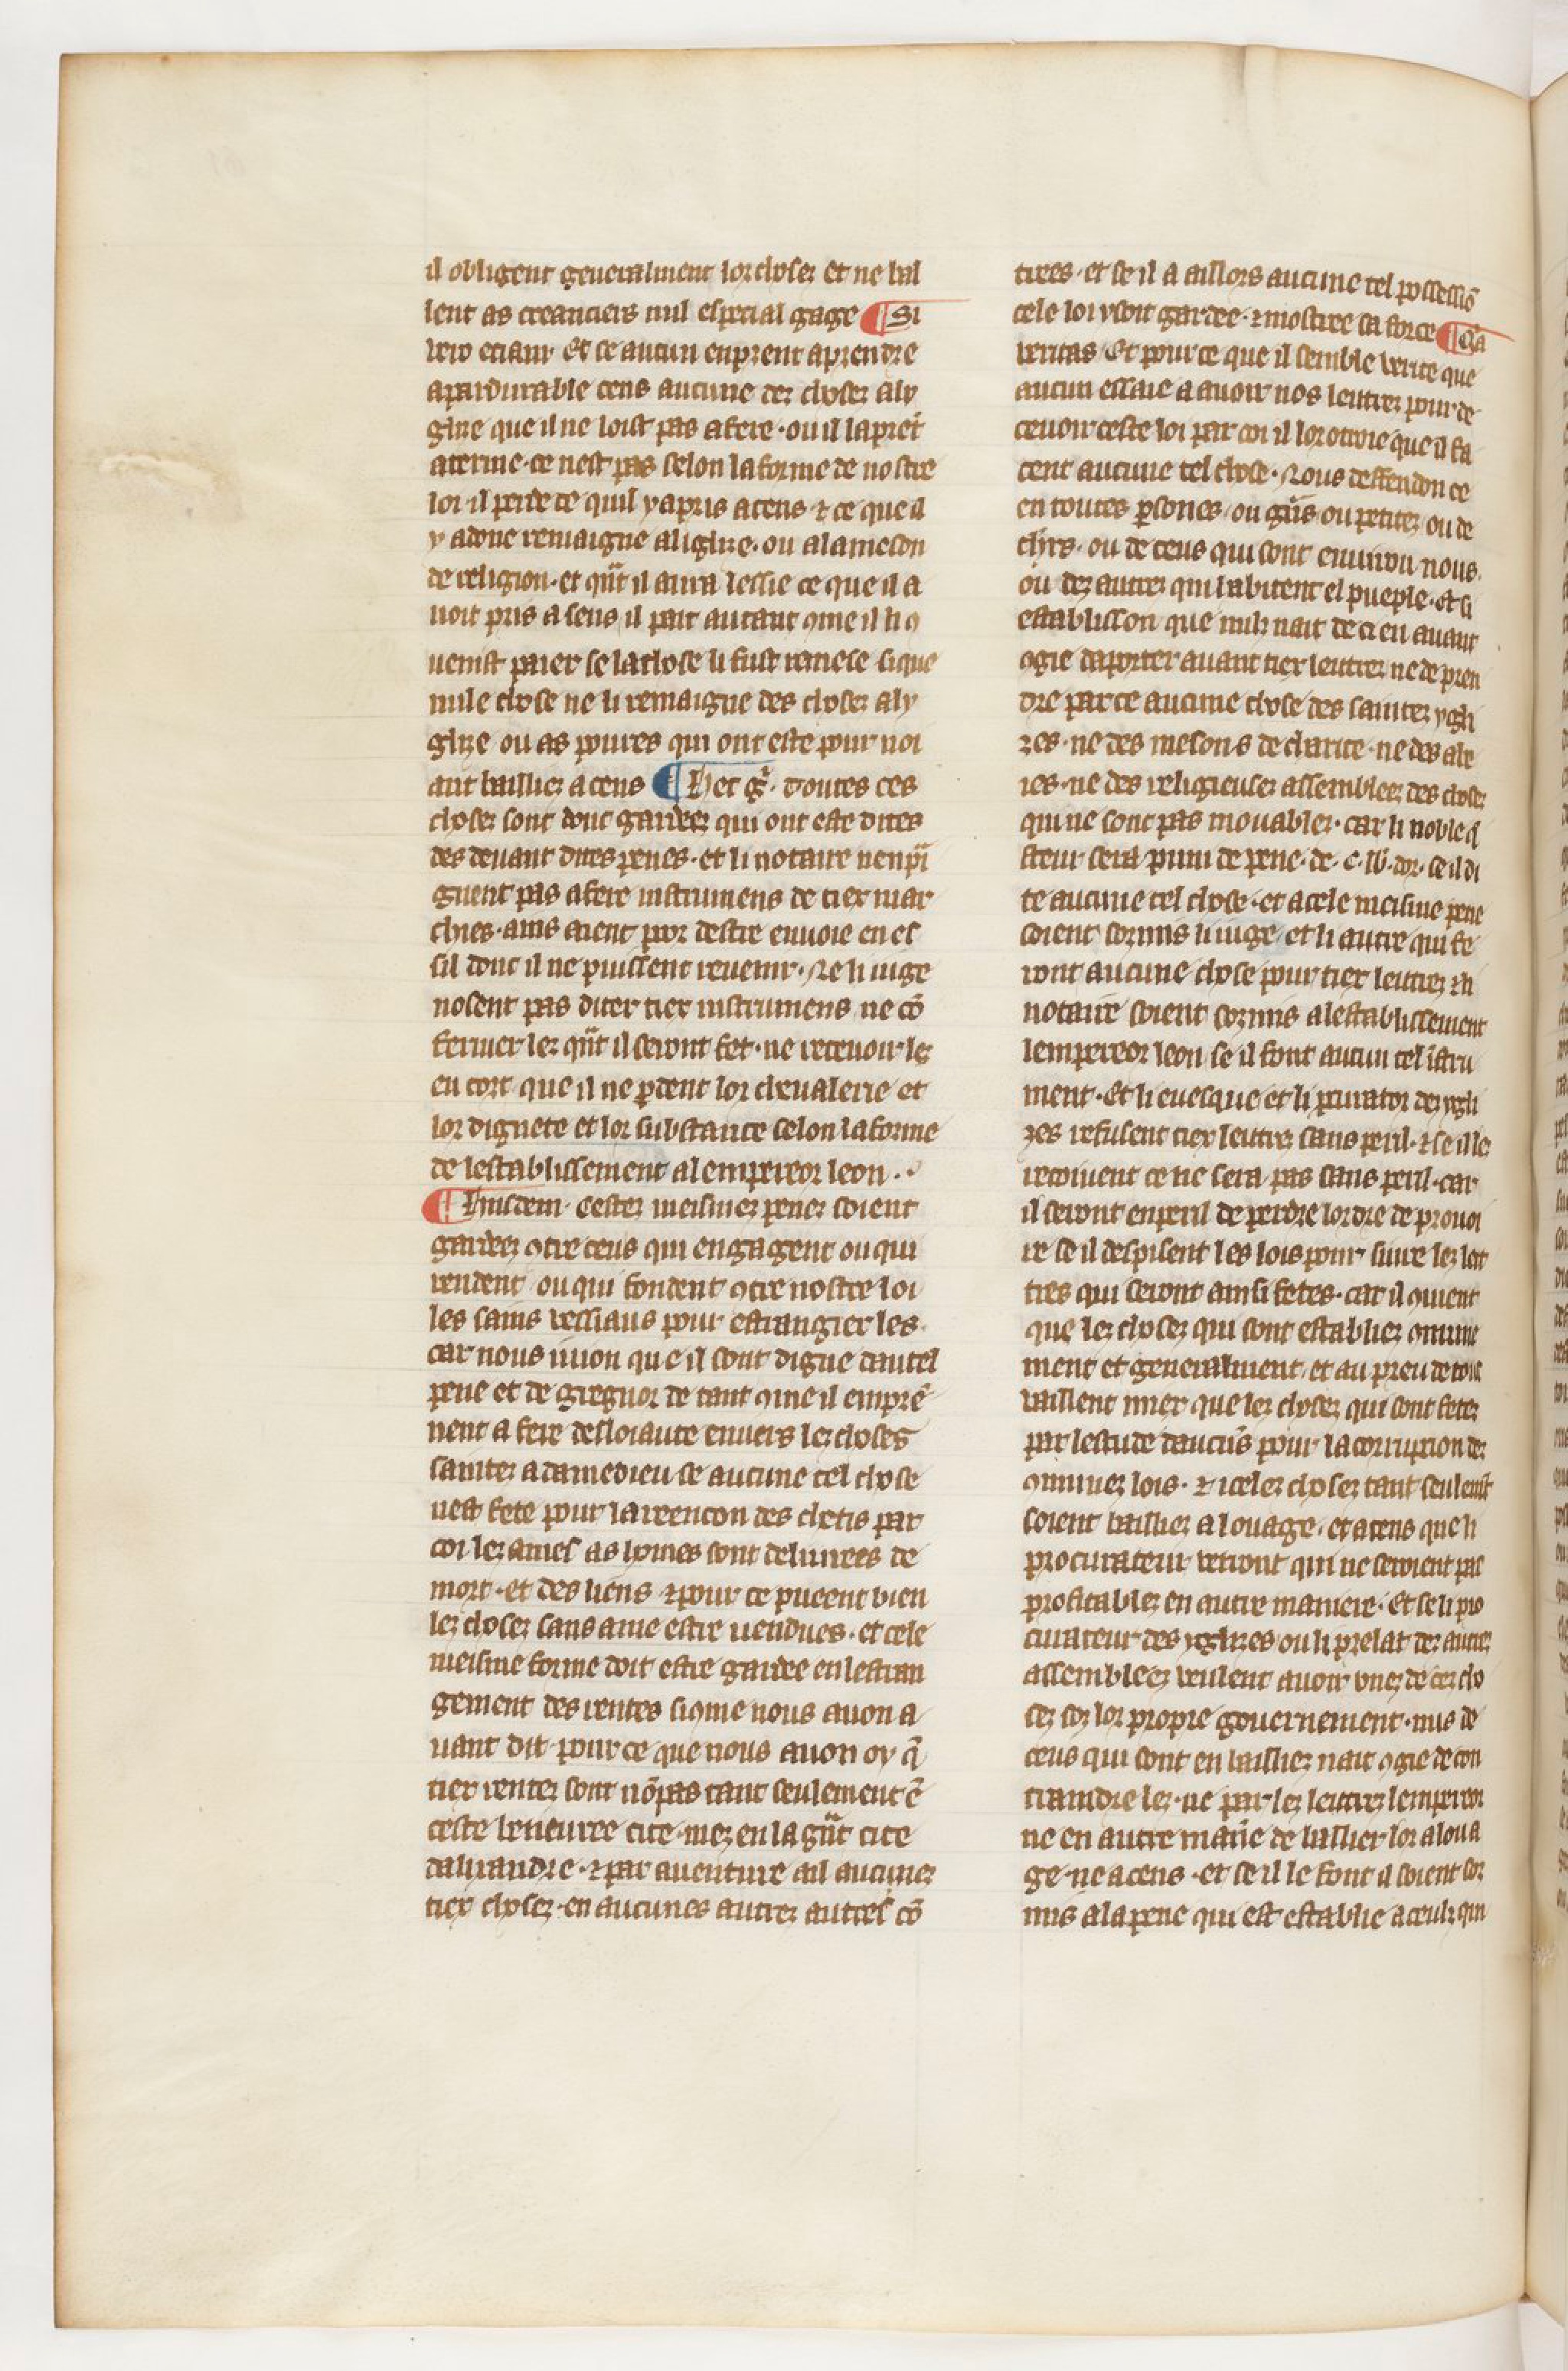 il obligent generalment lor choses et ne bal
lent as creanciers nul especial gage ¶ Si
uero etiam Et ce aucun enprent aprendre
apardurable cens aucune dez chosez aly
glize que il ne loist pas afere · ou il la pret
aterme · ce nest pas selon la forme de nostre
loi il perde ce quil y apris acens ⁊ ce que il
y adone remaigne aliglize · ou alameson
de religion · et qnt il aura lessie ce que il a
uoit pris a sens il pait autant ꝯme il li ꝯ
uenist paier se lachose li fust remese sique
nule chose ne li remaigne des chosez aly
glize ou as poures qui ont este pour noi
ant bailliez acens ¶ Hec g̃ · Toutes ces
chosez sont donc gardeez qui ont este dites
des deuant dites penes · et li notaire nenpñ
gnent pas afere instrumens de tiex mar
chies · ains aient por destre enuoie en es
sil dont il ne puissent reuenir · Ne li iuge
nosent pas diter tiex instrumens ne cõ
fermer lez qnt il seront fet · ne receuoir lez
en cort que il ne ꝑdent lor cheualerie et
lor dignete et lor substance selon laforme
de lestablissement alempereor leon ·
¶ Eiusdem · Cestez meismez penez soient
gardeez ꝯtre ceus qui engagent ou qui
uendent ou qui fondent ꝯtre nostre loi
les sains vessiaus pour estrangier les ·
car nous iuion que il sont digne dautel
pene et de gregnor de tant ꝯme il emprẽ
nent a fere desloiaute enuers lez choses
saintez adamedieu se aucune tel chose
nest fete pour la reencon des chetis par
coi lez ames as homes sont deliurees de
mort · et des liens ⁊ pour ce pueent bien
lez chosez sans ame estre uendues · et cele
meisme forme doit estre gardee en lestran
gement des rentes si ꝯme nous auon a
uant dit · pour ce que nous auon oy q̃
tiex rentez sont nõpas tant seulement ẽ
ceste beneuree cite · mez en la gnt cite
dalixandre · ⁊ par auenture ail aucunez
tiex chosez · en aucunes autrez autres cõ
trees · et se il a aillors aucune tel possessiõ
cele loi y soit gardee · ⁊ mostre sa force ¶ Q̃a
ueritas Et pour ce que il semble verite que
aucun essaie a auoir nos lettrez pour de
ceuoir ceste loi par coi il lor otroie que il fa
cent aucune tel chose · Nous deffendon ce
en toutes ꝑsones · ou gñs · ou petitez ou de
chrs · ou de ceus qui sont enuiron nous ·
ou dez autrez qui habitent el pueple · et si
establisson que nulz nait de ci en auant
ꝯgie daporter auant tiex lettrez ne de pren
dre par ce aucune chose des saintez ygli
zes · ne des mesons de charite · ne des ab
ies · ne des religieusez assembleez des chosez
qui ne sont pas mouablez · car li noble q̃
steur sera puni de pene · de · c · lb · dor · se il di
te aucune tel chose · et acele meisme pene
soient sozmis li iuge et li autre qui fe
ront aucune chose pour tiex lettrez ⁊ li
notaire soient sozmis alestablissement
lempereor leon se il font aucun tel ĩstru
ment · Et li euesque et li ꝓcurator dez ygli
zes refusent tiex lettrez sans peril · ⁊ se il lez
recoiuent ce ne sera pas sans peril · car
il seront enperil de perdre lordre de prouoi
re se il despisent les lois pour siure lez let
tres qui seront ainsi fetes · car il ꝯuient
que lez chosez qui sont establiez ꝯmune
ment et generalment et au preu de touz
vaillent miex que lez chosez qui sont fetez
par lestude daucũs pour la corruption dez
ꝯmunez lois · ⁊ icelez chosez tant seulemt
soient bailliez a louage · et acens que li
procurateur verront qui ne seroient pas
profitablez en autre maniere · Et se li pro
curateur des yglizes ou li prelat dez autrez
assembleez veulent auoir vnez de cez cho
sez soz lor propre gouernement · nus de
ceus qui sont en bailliez nait ꝯgie de con
traindre lez · ne par lez lettrez lempereor
ne en autre mañe de baillier lor aloua
ge · ne acens · et se il le font il soient soz
mis ala pene qui est establie a ceulz qui